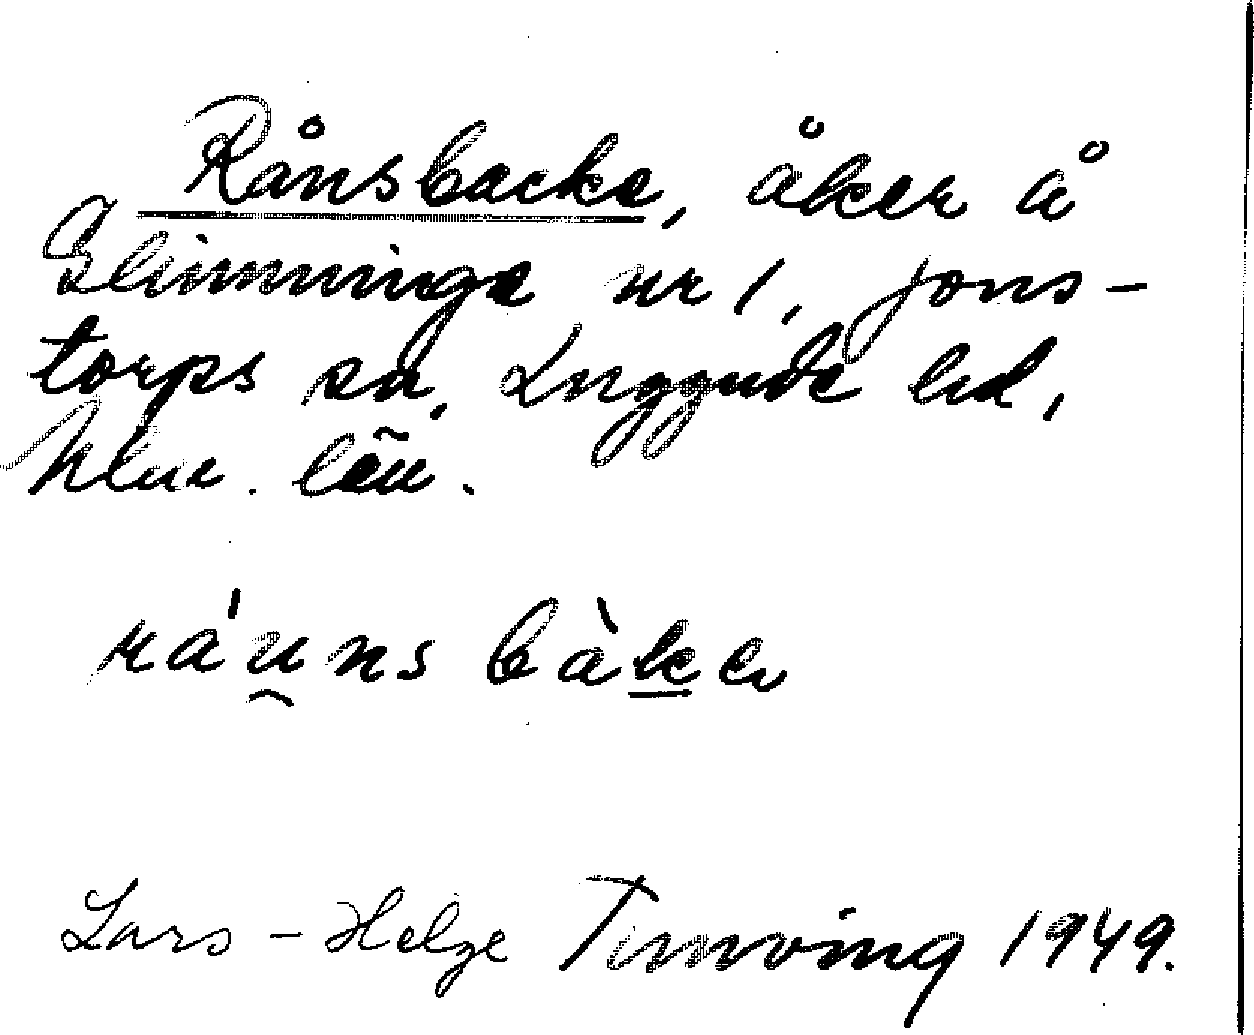 Rånsbacke, åker å
Glimminge nr 1, Jons-
torps sn, Luggude hd,
Mlm. län.
ráu̯ns bàkə
Lars-Helge Timving 1949.